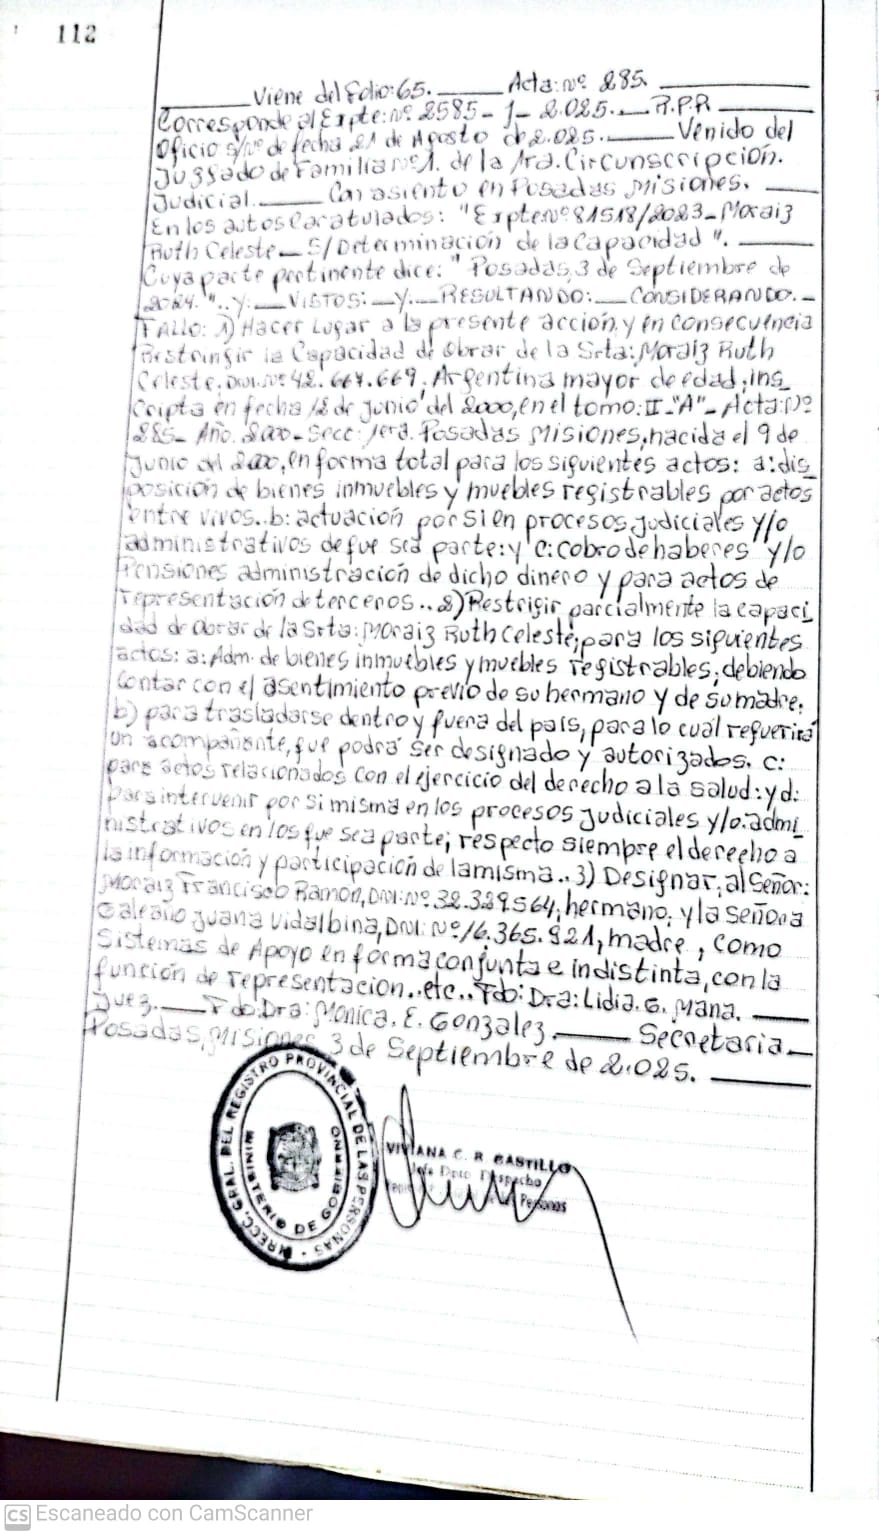 112
Viene del Folio: 65. Acta: nº 285.
Corresponde al Expte: nº. 2585- J- 2.025. R.P.R
Oficio s/nº de fecha 21 de Agosto de 2.025. Venido del
Juzgado de Familia nº 1. de la 1ra. Circunscripción.
Judicial. Con asiento en Posadas Misiones.
En los autos Caratulados: "Expte Nº 81518/2023- Moraiz
Ruth Celeste- S/Determinación de la Capacidad".
Cuya parte pertinente dice: "Posadas, 3 de Septiembre de
2024."..y: VISTOS: y. RESULTANDO: CONSIDERANDO.-
FALLO: 1) Hacer Lugar a la presente acción, y en consecuencia
Restringir la Capacidad de Obrar de la Srta: Moraiz Ruth
Celeste, DNI. Nº 42.667.669, Argentina mayor de edad, ins_
cripta en fecha 12 de junio del 2000, en el tomo: II-"A"- Acta: Nº
285- Año. 2000- Secc: 1era. Posadas Misiones, nacida el 9 de
junio del 2000, en forma total para los siguientes actos: a: dis_
posición de bienes inmuebles y muebles registrables por actos
entre vivos.. b: actuación por si en procesos judiciales y/o
administrativos de que sea parte: y c: cobro de haberes y/o
Pensiones administración de dicho dinero y para actos de
representación de terceros.. 2) Restrigir parcialmente la capaci_
dad de obrar de la Srta: Moraiz Ruth Celeste, para los siguientes
actos: a: Adm. de bienes inmuebles y muebles registrables, debiendo
contar con el asentimiento previo de su hermano y de su madre.
b) para trasladarse dentro y fuera del país, para lo cual requerirá
un acompañante, que podrá ser designado y autorizados. c:
para actos relacionados con el ejercicio del derecho a la salud: y d:
para intervenir por si misma en los procesos judiciales y/o admi_
nistrativos en los que sea parte; respecto siempre el derecho a
la información y participación de la misma.. 3) Designar, al Señor:
Moraiz Francisco Ramon, DNI: Nº. 32.329.564, hermano, y la Señora
Galeaño Juana Vidalbina, DNI: Nº 16.365.921, madre, como
Sistemas de Apoyo en forma conjunta e indistinta, con la
función de representacion.. etc.. Fdo: Dra: Lidia. G. Mana.
Juez. Fdo: Dra: Monica. E. Gonzalez. Secretaria_
Posadas, Misiones 3 de Septiembre de 2.025.
DIRECC. GRAL. DEL REGISTRO PROVINCIAL DE LAS PERSONAS
MINISTERIO DE GOBIERNO
VIVIANA C. R. CASTILLO
Jefa Dpto Despacho
Personas
CS Escaneado con CamScanner